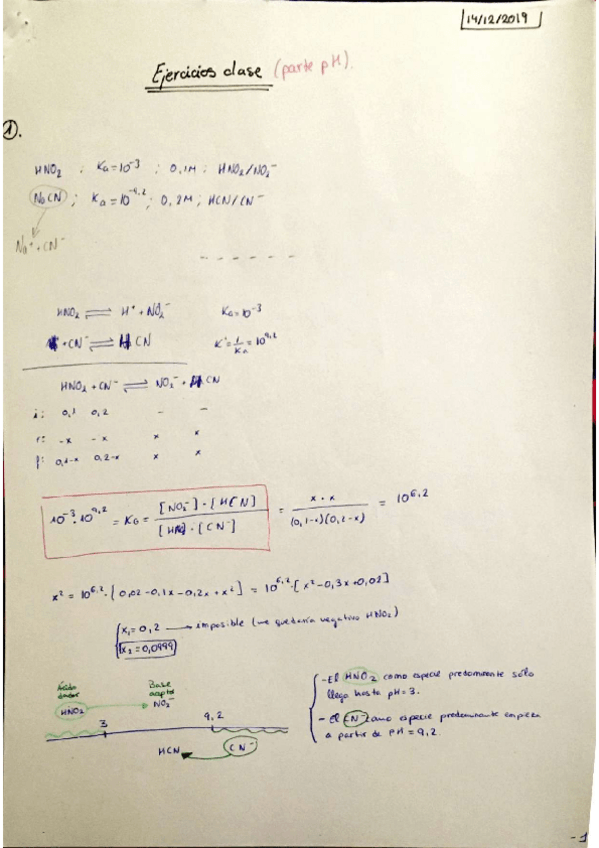 14/12/2019
Ejercicios clase (parte pH).
1.
HNO₂ ; Ka=10⁻³ ; 0,1M ; HNO₂/NO₂⁻
NaCN ; Ka=10⁻⁹,² ; 0,2M ; HCN/CN⁻
Na⁺ + CN⁻
- - - - - -
HNO₂ ⇌ H⁺ + NO₂⁻ Ka=10⁻³
+ CN⁻ ⇌ HCN K'=1/Ka=10⁹,²
HNO₂ + CN⁻ ⇌ NO₂⁻ + HCN
i: 0,1 0,2 - -
r: -x -x x x
f: 0,1-x 0,2-x x x
10⁻³·10⁹,² = KG = [NO₂⁻]·[HCN] / [HNO₂]·[CN⁻] = x·x / (0,1-x)(0,2-x) = 10⁶,²
x² = 10⁶,²·[0,02-0,1x-0,2x+x²] = 10⁶,²·[x²-0,3x+0,02]
x₁=0,2 → imposible (me quedaría negativo HNO₂)
x₂=0,0999
Ácido dador
Base aceptor
HNO₂ → NO₂⁻
3 9,2
HCN ← CN⁻
-El HNO₂ como especie predominante sólo
llega hasta pH=3.
- El CN⁻ como especie predominante empieza
a partir de pH=9,2
-1